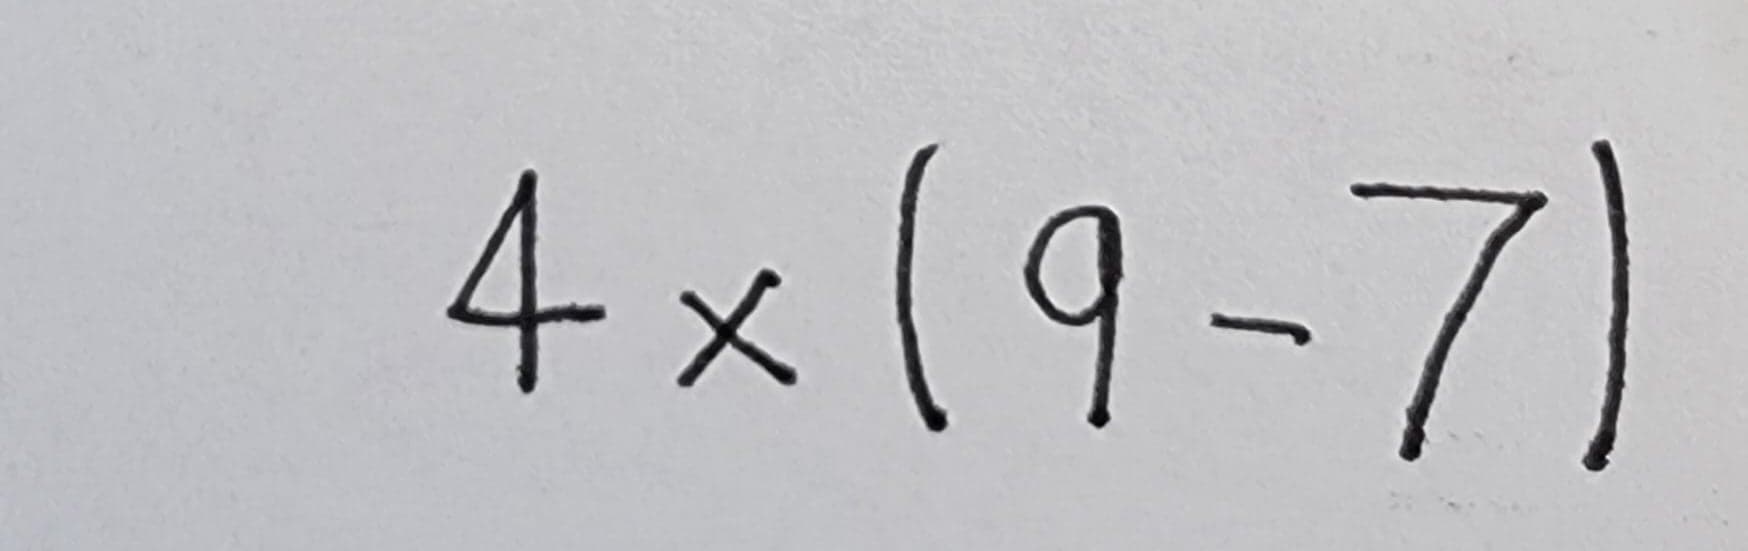 4 × (9 - 7)